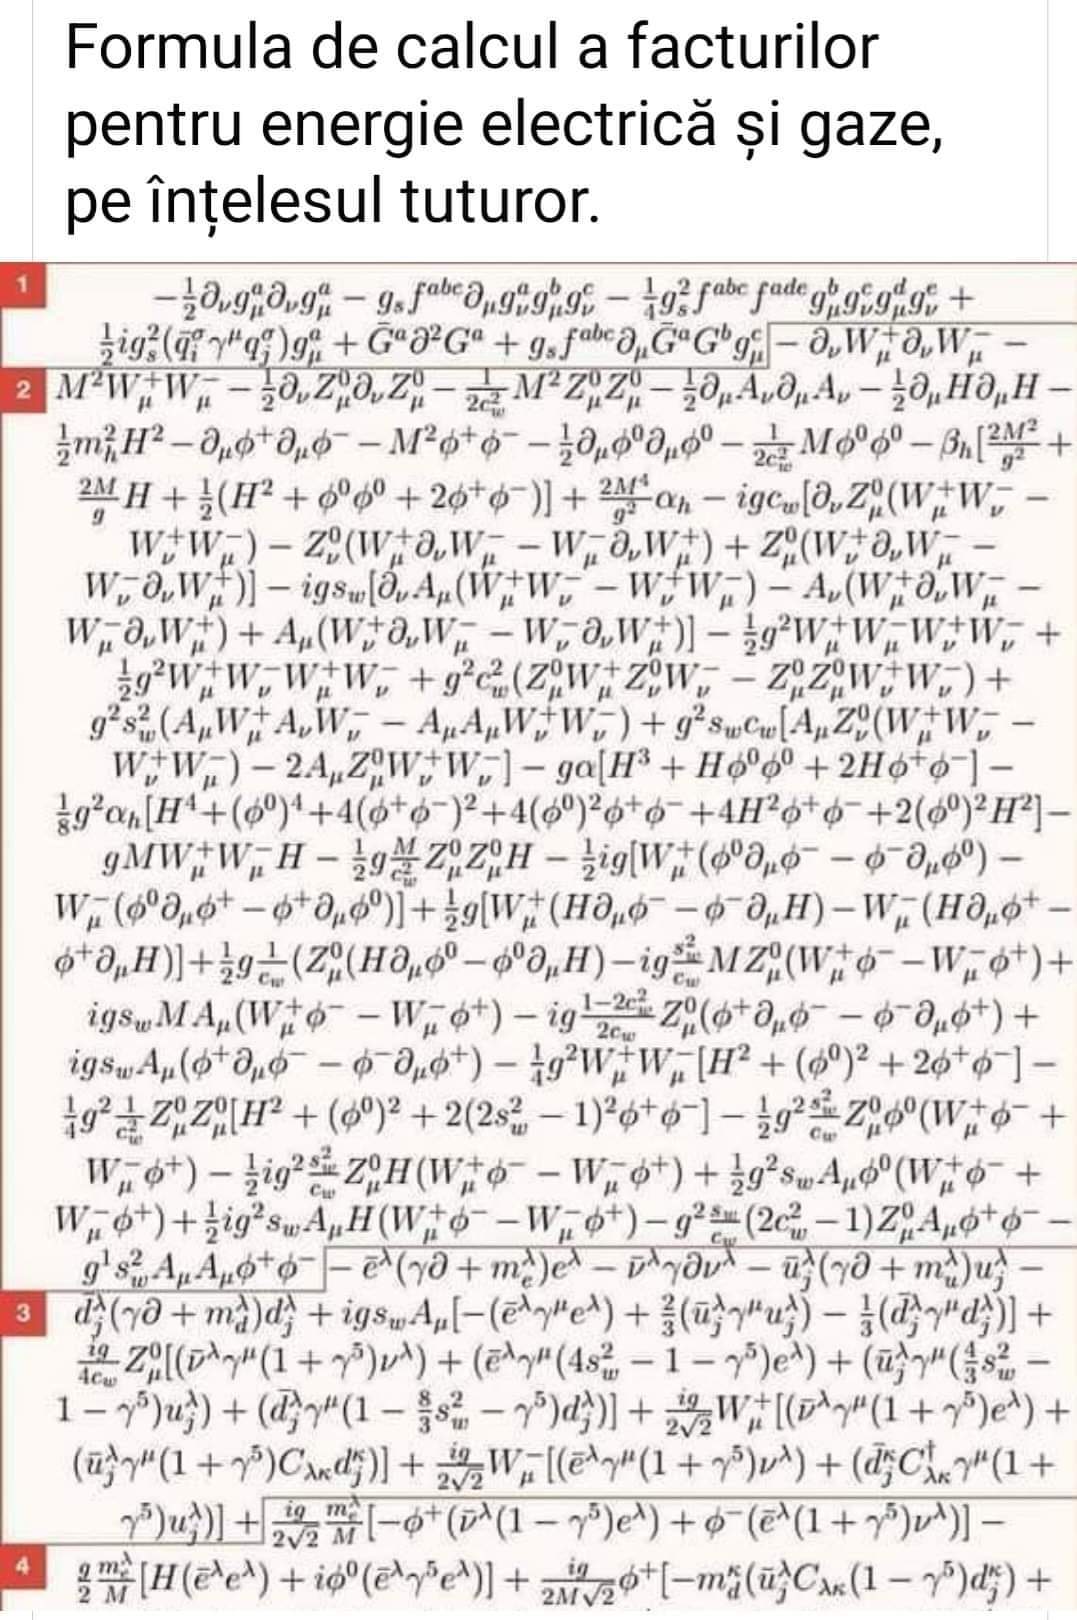 Formula de calcul a facturilor
pentru energie electrică și gaze,
pe înțelesul tuturor.
1
−½∂νg^a_μ∂νg^a_μ − g_s f^{abc}∂μg^a_νg^b_μg^c_ν − ¼g²_s f^{abc} f^{ade} g^b_μg^c_νg^d_μg^e_ν +
½ig²_s(q̄^σ_i γ^μ q^σ_j)g^a_μ + Ḡ^a∂²G^a + g_s f^{abc}∂μḠ^aG^bg^c_μ − ∂νW⁺_μ∂νW⁻_μ −
2
M²W⁺_μW⁻_μ − ½∂νZ⁰_μ∂νZ⁰_μ − 1/(2c²_w) M²Z⁰_μZ⁰_μ − ½∂μAν∂μAν − ½∂μH∂μH −
½m²_hH² − ∂μφ⁺∂μφ⁻ − M²φ⁺φ⁻ − ½∂μφ⁰∂μφ⁰ − 1/(2c²_w) Mφ⁰φ⁰ − β_h[2M²/g² +
2M/g H + ½(H² + φ⁰φ⁰ + 2φ⁺φ⁻)] + 2M⁴/g² α_h − igc_w[∂νZ⁰_μ(W⁺_μW⁻_ν −
W⁺_νW⁻_μ) − Z⁰_ν(W⁺_μ∂νW⁻_μ − W⁻_μ∂νW⁺_μ) + Z⁰_μ(W⁺_ν∂νW⁻_μ −
W⁻_ν∂νW⁺_μ)] − igs_w[∂νA_μ(W⁺_μW⁻_ν − W⁺_νW⁻_μ) − A_ν(W⁺_μ∂νW⁻_μ −
W⁻_μ∂νW⁺_μ) + A_μ(W⁺_ν∂νW⁻_μ − W⁻_ν∂νW⁺_μ)] − ½g²W⁺_μW⁻_μW⁺_νW⁻_ν +
½g²W⁺_μW⁻_νW⁺_μW⁻_ν + g²c²_w(Z⁰_μW⁺_μZ⁰_νW⁻_ν − Z⁰_μZ⁰_μW⁺_νW⁻_ν) +
g²s²_w(A_μW⁺_μA_νW⁻_ν − A_μA_μW⁺_νW⁻_ν) + g²s_wc_w[A_μZ⁰_ν(W⁺_μW⁻_ν −
W⁺_νW⁻_μ) − 2A_μZ⁰_μW⁺_νW⁻_ν] − gα[H³ + Hφ⁰φ⁰ + 2Hφ⁺φ⁻] −
⅛g²α_h[H⁴+(φ⁰)⁴+4(φ⁺φ⁻)²+4(φ⁰)²φ⁺φ⁻+4H²φ⁺φ⁻+2(φ⁰)²H²]−
gMW⁺_μW⁻_μH − ½g M/c²_w Z⁰_μZ⁰_μH − ½ig[W⁺_μ(φ⁰∂μφ⁻ − φ⁻∂μφ⁰) −
W⁻_μ(φ⁰∂μφ⁺ − φ⁺∂μφ⁰)] + ½g[W⁺_μ(H∂μφ⁻ − φ⁻∂μH) − W⁻_μ(H∂μφ⁺ −
φ⁺∂μH)] + ½g 1/c_w (Z⁰_μ(H∂μφ⁰ − φ⁰∂μH) − ig s²_w/c_w MZ⁰_μ(W⁺_μφ⁻ − W⁻_μφ⁺) +
igs_wMA_μ(W⁺_μφ⁻ − W⁻_μφ⁺) − ig (1−2c²_w)/(2c_w) Z⁰_μ(φ⁺∂μφ⁻ − φ⁻∂μφ⁺) +
igs_wA_μ(φ⁺∂μφ⁻ − φ⁻∂μφ⁺) − ¼g²W⁺_μW⁻_μ[H² + (φ⁰)² + 2φ⁺φ⁻] −
¼g² 1/c²_w Z⁰_μZ⁰_μ[H² + (φ⁰)² + 2(2s²_w − 1)²φ⁺φ⁻] − ½g² s²_w/c_w Z⁰_μφ⁰(W⁺_μφ⁻ +
W⁻_μφ⁺) − ½ig² s²_w/c_w Z⁰_μH(W⁺_μφ⁻ − W⁻_μφ⁺) + ½g²s_wA_μφ⁰(W⁺_μφ⁻ +
W⁻_μφ⁺) + ½ig²s_wA_μH(W⁺_μφ⁻ − W⁻_μφ⁺) − g² s_w/c_w (2c²_w − 1)Z⁰_μA_μφ⁺φ⁻ −
g¹s²_wA_μA_μφ⁺φ⁻ − ē^λ(γ∂ + m^λ_e)e^λ − ν̄^λγ∂ν^λ − ū^λ_j(γ∂ + m^λ_u)u^λ_j −
3
d̄^λ_j(γ∂ + m^λ_d)d^λ_j + igs_wA_μ[−(ē^λγ^μe^λ) + ⅔(ū^λ_jγ^μu^λ_j) − ⅓(d̄^λ_jγ^μd^λ_j)] +
ig/(4c_w) Z⁰_μ[(ν̄^λγ^μ(1 + γ⁵)ν^λ) + (ē^λγ^μ(4s²_w − 1 − γ⁵)e^λ) + (ū^λ_jγ^μ(4/3 s²_w −
1 − γ⁵)u^λ_j) + (d̄^λ_jγ^μ(1 − 8/3 s²_w − γ⁵)d^λ_j)] + ig/(2√2) W⁺_μ[(ν̄^λγ^μ(1 + γ⁵)e^λ) +
(ū^λ_jγ^μ(1 + γ⁵)C_{λκ}d^κ_j)] + ig/(2√2) W⁻_μ[(ē^λγ^μ(1 + γ⁵)ν^λ) + (d̄^κ_jC†_{λκ}γ^μ(1 +
γ⁵)u^λ_j)] + ig/(2√2) m^λ_e/M [−φ⁺(ν̄^λ(1 − γ⁵)e^λ) + φ⁻(ē^λ(1 + γ⁵)ν^λ)] −
4
g/2 m^λ_e/M [H(ē^λe^λ) + iφ⁰(ē^λγ⁵e^λ)] + ig/(2M√2) φ⁺[−m^κ_d(ū^λ_jC_{λκ}(1 − γ⁵)d^κ_j) +